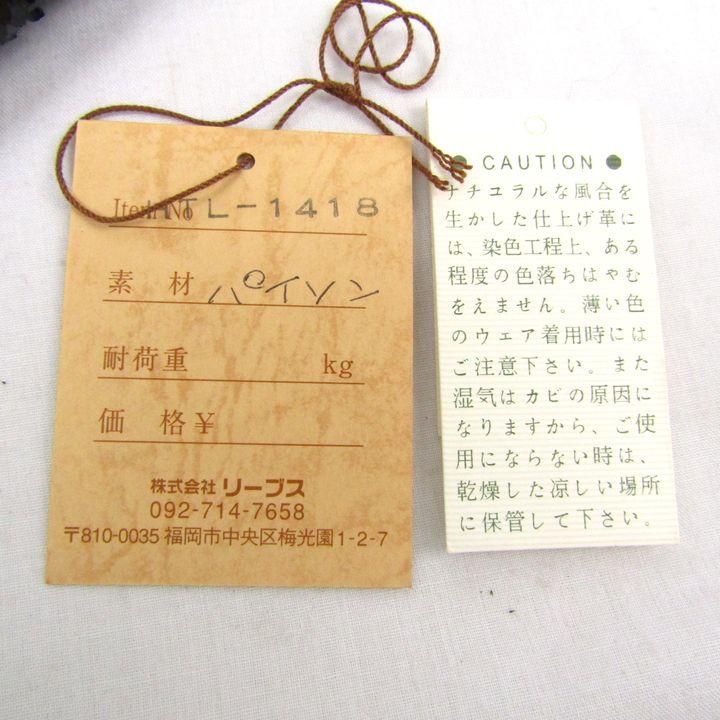 Item No TL-1418
素材 パイソン
耐荷重 kg
価格¥
株式会社 リーブス
092-714-7658
〒810-0035 福岡市中央区梅光園1-2-7
● CAUTION ●
ナチュラルな風合を
生かした仕上げ革に
は、染色工程上、ある
程度の色落ちはやむ
をえません。薄い色
のウェア着用時には
ご注意下さい。また
湿気はカビの原因に
なりますから、ご使
用にならない時は、
乾燥した涼しい場所
に保管して下さい。